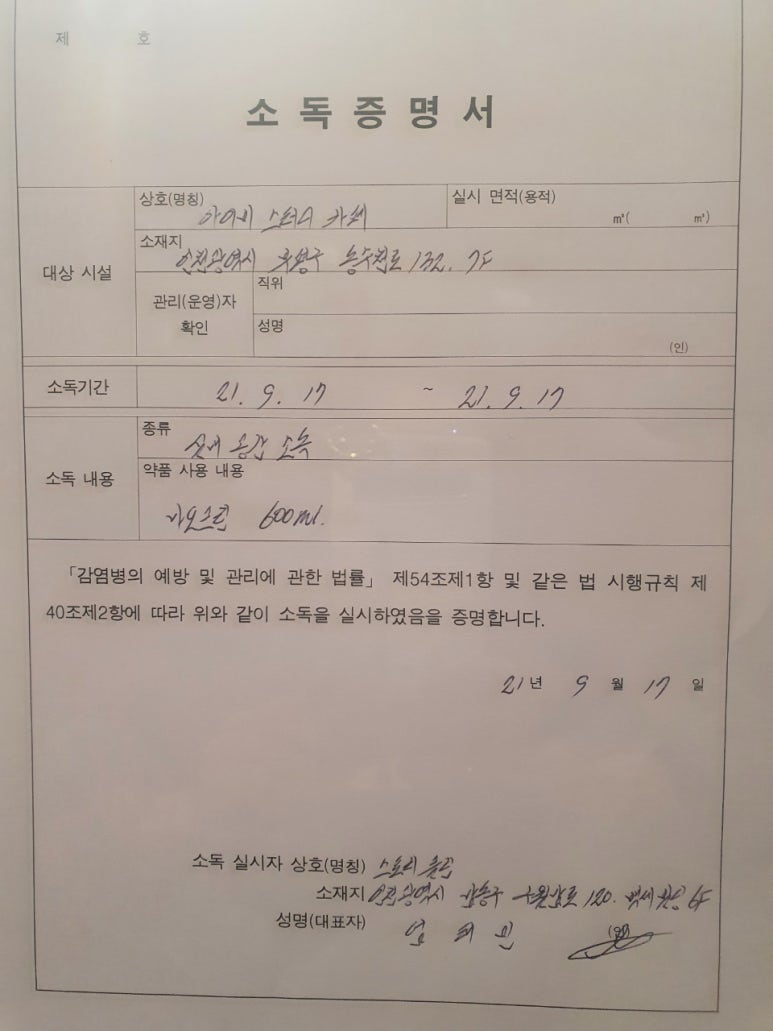 제 호
소 독 증 명 서
대상 시설
상호(명칭) 스터디 카페
실시 면적(용적) ㎥( ㎥)
소재지 인천광역시 132. 7F
관리(운영)자
확인
직위
성명 (인)
소독기간 21. 9. 17 ~ 21. 9. 17
소독 내용
종류
실내 공간 소독
약품 사용 내용
600ml.
「감염병의 예방 및 관리에 관한 법률」 제54조제1항 및 같은 법 시행규칙 제
40조제2항에 따라 위와 같이 소독을 실시하였음을 증명합니다.
21년 9 월 17 일
소독 실시자 상호(명칭)
소재지 인천광역시 남동구 120. 6F
성명(대표자)